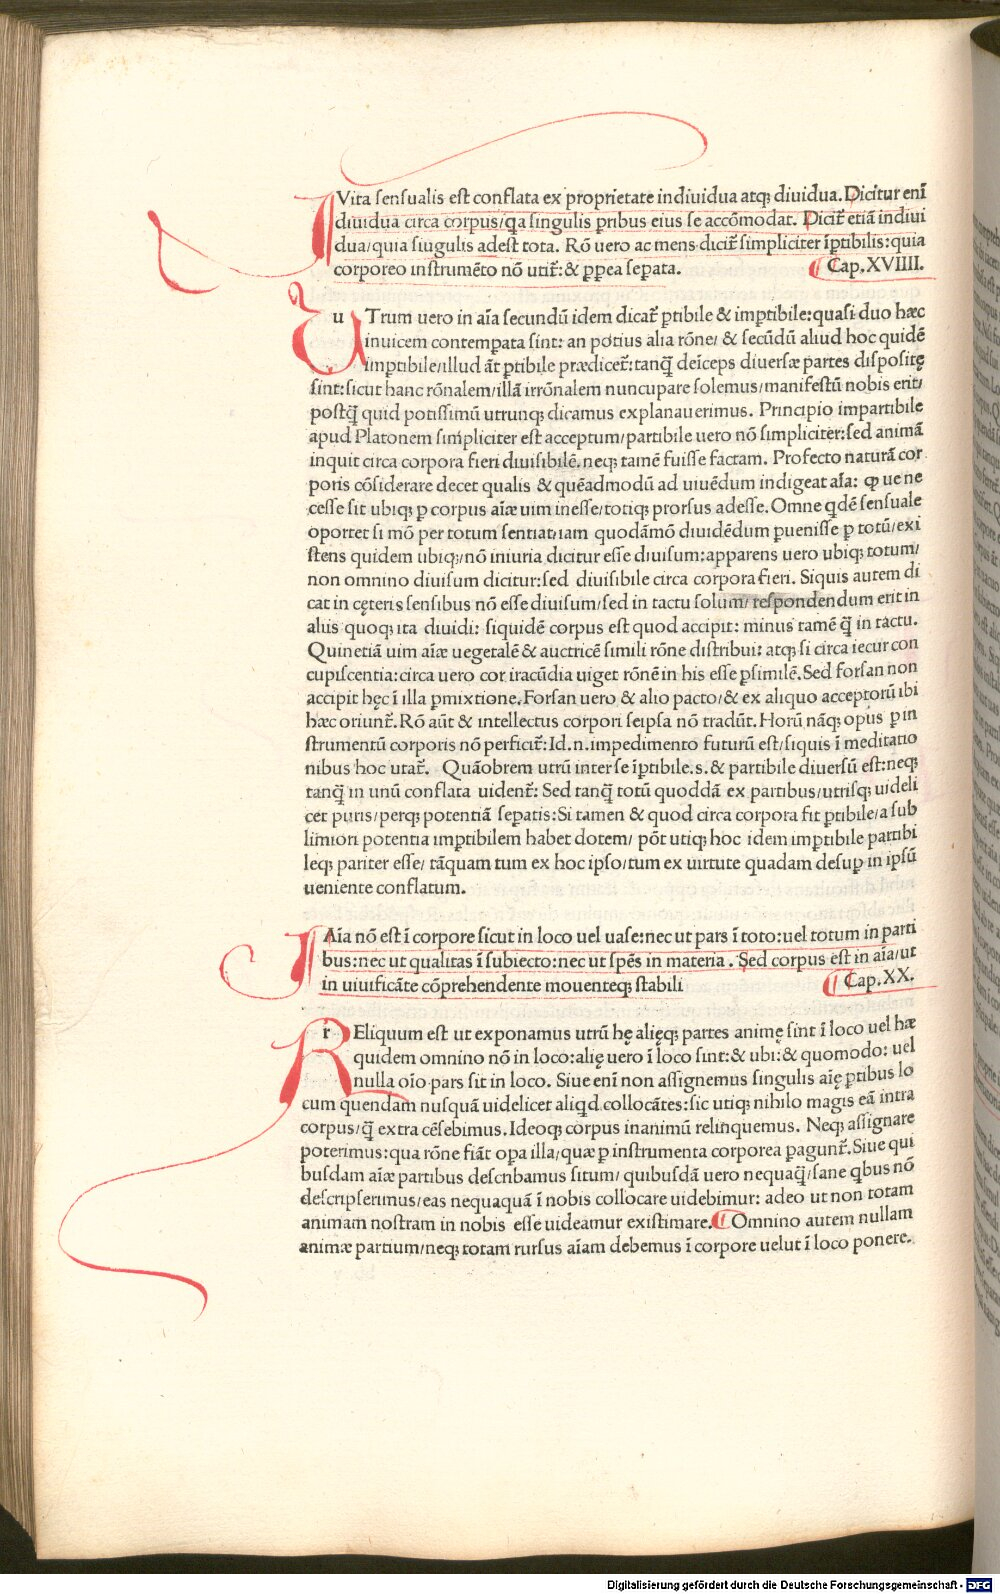 Vita sensualis est conflata ex proprietate indiuidua atqꝫ diuidua. Dicitur enī
diuidua circa corpus/qa singulis ꝑtibus eius se accōmodat. Dicit̃ etiā indiui
dua/quia siugulis adest tota. Rō uero ac mens dicit̃ simpliciter īꝑtibilis:quia
corporeo instrumēto nō utit̃: & ꝑpea sepata. Cap.XVIIII.
u TRum uero in aīa secundū idem dicat̃ ꝑtibile & imꝑtibile:quasi duo hæc
inuicem contempata sint: an potius alia rōne/ & secūdū aliud hoc quidē
imꝑtibile/illud āt ꝑtibile prædicet̃:tanq̄ deīceps diuersæ partes dispositę
sint:sicut hanc rōnalem/illā irrōnalem nuncupare solemus/manifestū nobis erit/
postq̄ quid potissimū utrunqꝫ dicamus explanauerimus. Principio impartibile
apud Platonem simpliciter est acceptum/partibile uero nō simpliciter:sed animā
inquit circa corpora fieri diuisibilē.neqꝫ tamē fuisse factam. Profecto naturā cor
poris cōsiderare decet qualis & quēadmodū ad uiuēdum indigeat aīa: ꝙ ue ne
cesse sit ubiqꝫ ꝑ corpus aīæ uim inesse/totiqꝫ prorsus adesse. Omne qdē sensuale
oportet si mō per totum sentiat/iam quodāmō diuidēdum ꝑuenisse ꝑ totū/exi
stens quidem ubiqꝫ/nō iniuria dicitur esse diuisum:apparens uero ubiqꝫ totum/
non omnino diuisum dicitur:sed diuisibile circa corpora fieri. Siquis autem di
cat in cęteris sensibus nō esse diuisum/sed in tactu solum/respondendum erit in
aliis quoqꝫ ita diuidi: siquidē corpus est quod accipit: minus tamē q̄ in tactu.
Quinetiā uim aīæ uegetalē & auctricē simili rōne distribui: atqꝫ si circa iecur con
cupiscentia:circa uero cor iracūdia uiget rōnē in his esse ꝑsimilē. Sed forsan non
accipit hęc ī illa ꝑmixtione. Forsan uero & alio pacto/& ex aliquo acceptorū ibi
hæc oriunt̃. Rō aūt & intellectus corpori seipsa nō tradūt. Horū nāqꝫ opus ꝑ in
strumentū corporis nō perficit̃: Id.n.impedimento futurū est/siquis ī meditatio
nibus hoc utat̃. Quāobrem utrū inter se īꝑtibile.s.& partibile diuersū est:neqꝫ
tanq̄ in unū conflata uident̃: Sed tanq̄ totū quoddā ex partibus/utrisqꝫ uideli
cet puris/perqꝫ potentiā sepatis: Si tamen & quod circa corpora fit ꝑtibile/a sub
limiori potentia imꝑtibilem habet dotem/ pōt utiqꝫ hoc idem imꝑtibile partibi
leqꝫ pariter esse/ tāquam tum ex hoc ipso/tum ex uirtute quadam desuꝑ in ipsū
ueniente conflatum.
Aīa nō est ī corpore sicut in loco uel uase:nec ut pars ī toto:uel totum in parti
bus:nec ut qualitas ī subiecto:nec ut spēs in materia. Sed corpus est in aīa/ut
in uiuificāte cōprehendente mouenteqꝫ stabili Cap.XX.
r Eliquum est ut exponamus utrū hę alięqꝫ partes animę sint ī loco uel hæ
quidem omnino nō in loco:alię uero ī loco sint:& ubi:& quomodo: uel
nulla oīo pars sit in loco. Siue enī non assignemus singulis aīę ꝑtibus lo
cum quendam nusquā uidelicet aliqd collocātes:sic utiqꝫ nihilo magis eā intra
corpus/q̄ extra cēsebimus. Ideoqꝫ corpus inanimū relinquemus. Neqꝫ assignare
poterimus:qua rōne fiāt opa illa/quæ ꝑ instrumenta corporea ꝑagunt̃. Siue qui
busdam aīæ partibus describamus situm/ quibusdā uero nequaq̄/sane qbus nō
descripserimus/eas nequaquā ī nobis collocare uidebimur: adeo ut non totam
animam nostram in nobis esse uideamur existimare. Omnino autem nullam
animæ partium/neqꝫ totam rursus aīam debemus ī corpore uelut ī loco ponere.
Digitalisierung gefördert durch die Deutsche Forschungsgemeinschaft - DFG